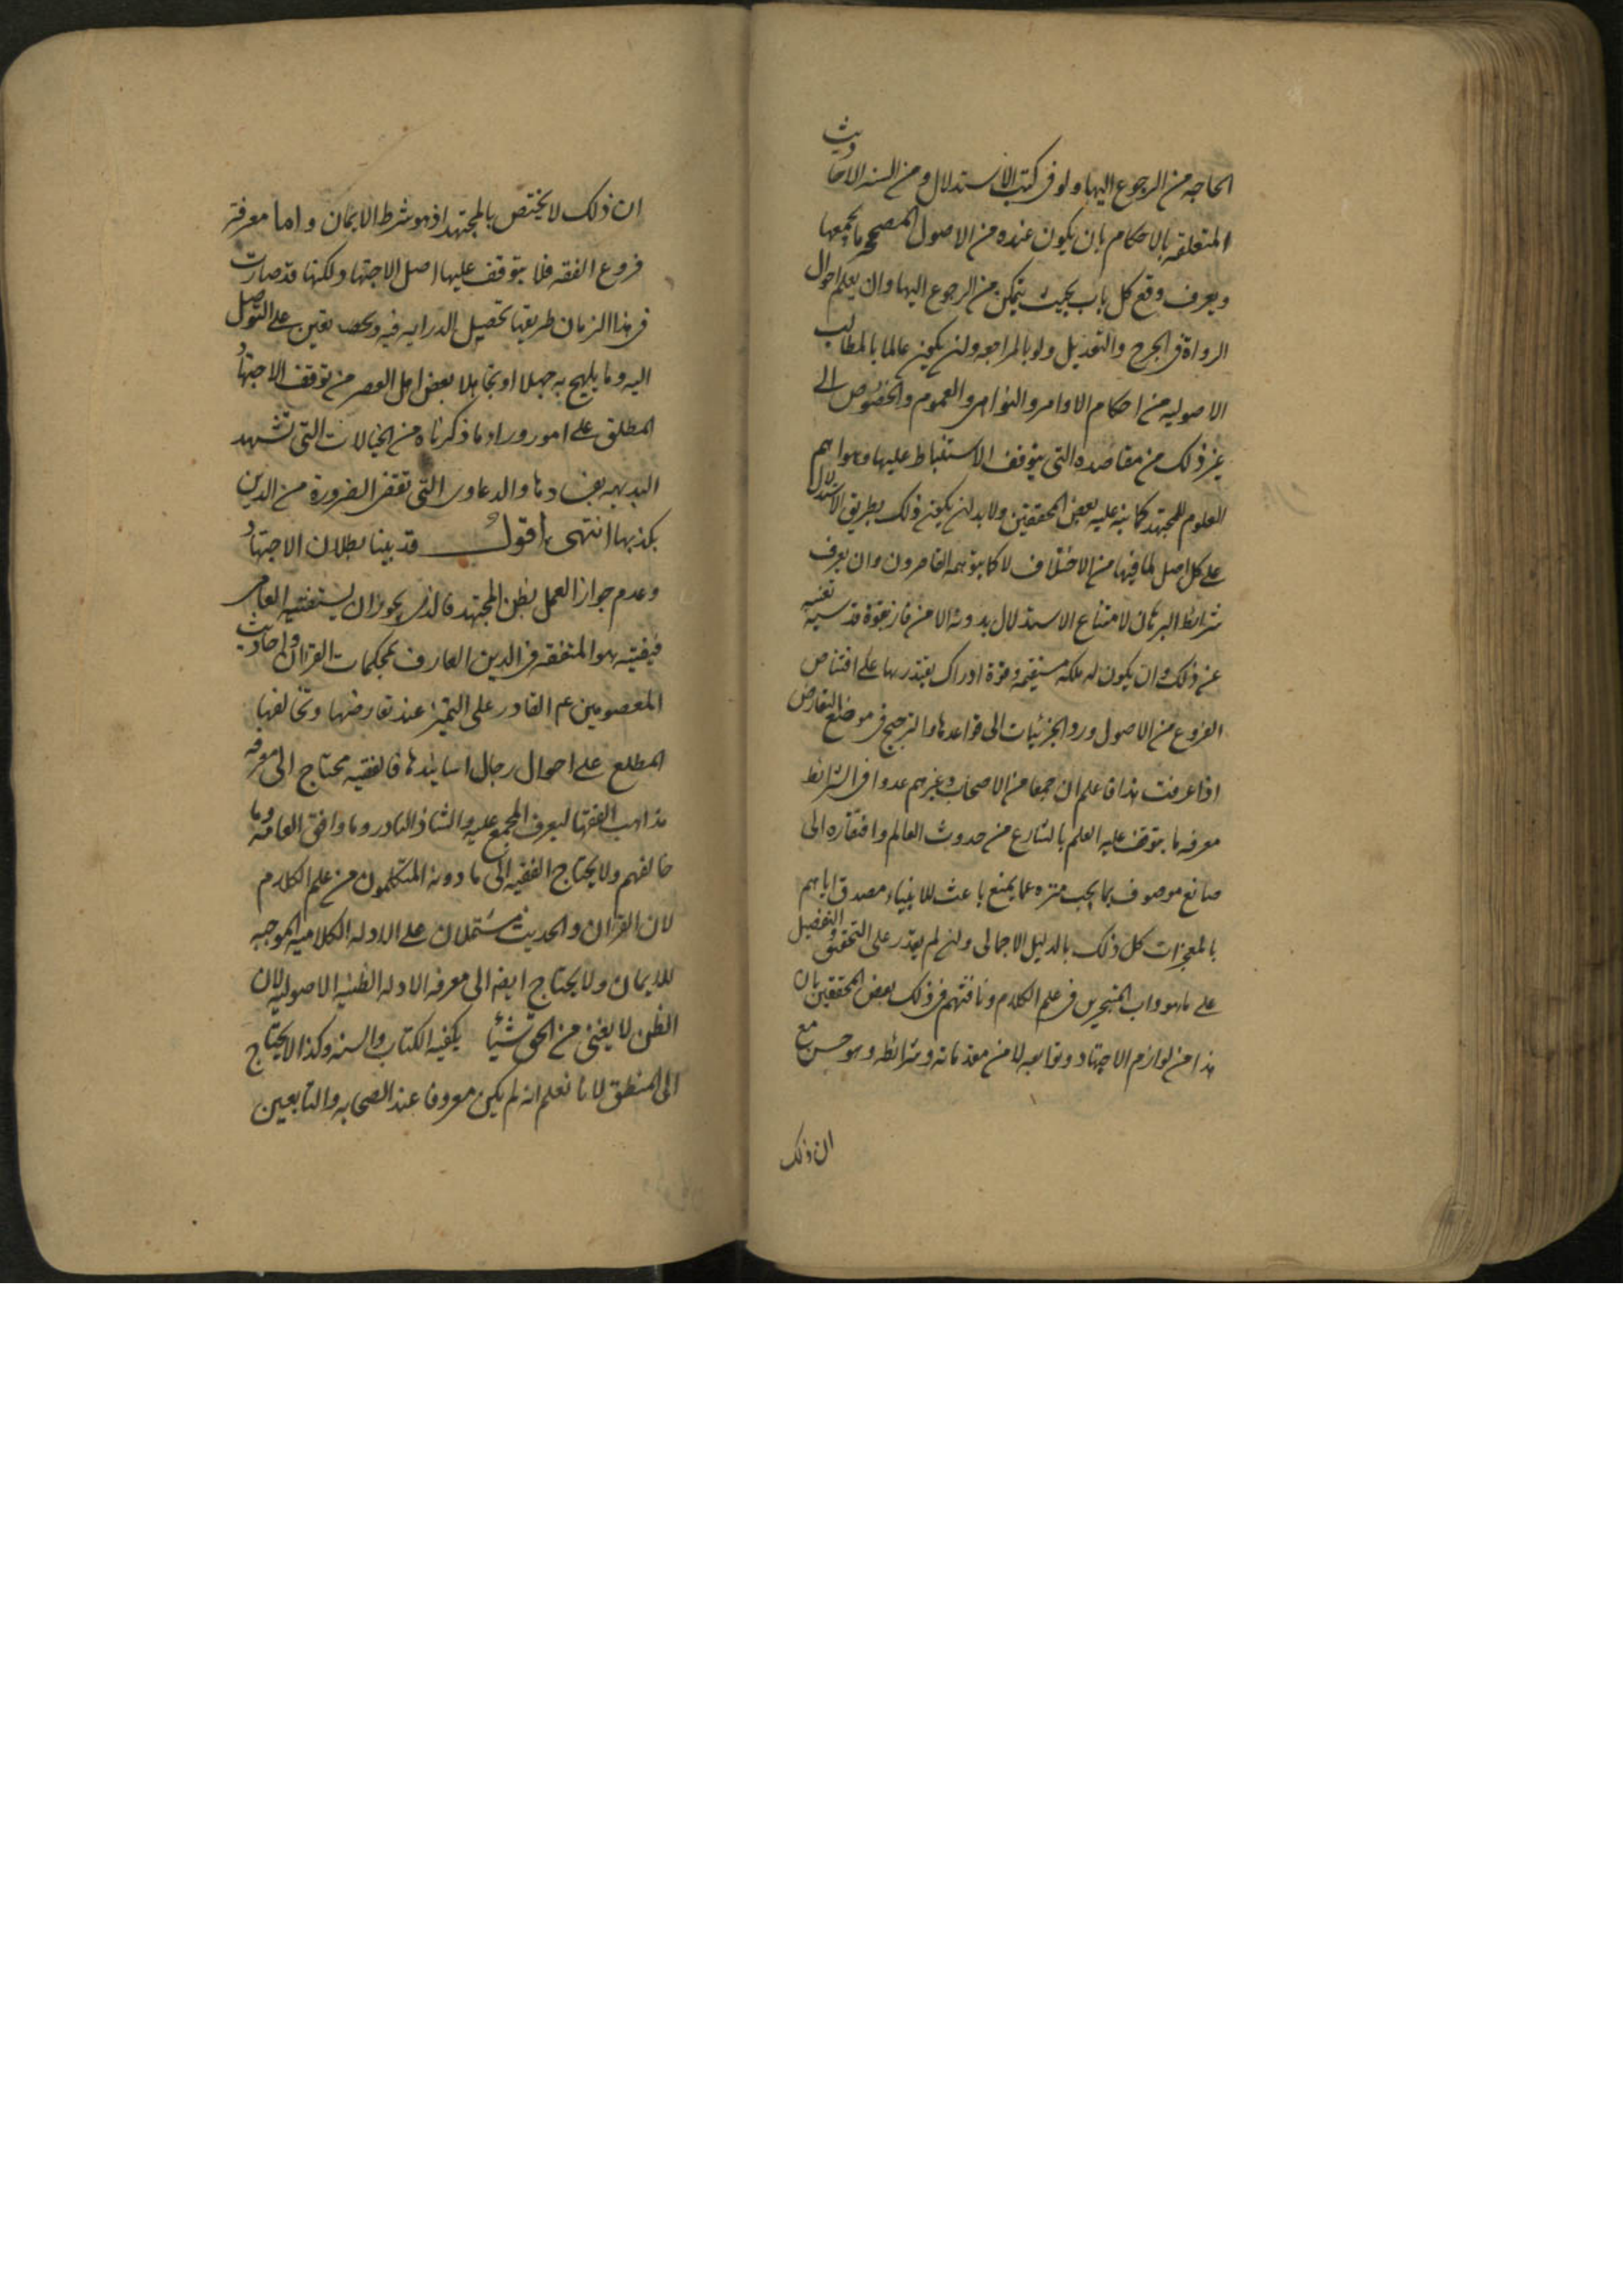 الحاجه من الرجوع اليها ولو فى كتب الاستدلال ومن السنه الاحاديث
المتعلقه بالاحكام بان يكون عنده من الاصول المصححه ما يجمعها
ويعرف وقع كل باب بحيث يتمكن من الرجوع اليها وان يعلم احوال
الرواة فى الجرح والتعديل ولو بالمراجعه وان يكون عالما بالمطالب
الاصوليه من احكام الاوامر والنواهى والعموم والخصوص الى
غير ذلك من مقاصده التى يتوقف الاستنباط عليها وهو اهم
العلوم للمجتهد كما نبه عليه بعض المحققين ولا بد ان يكون ذلك بطريق الاستدلال
على كل اصل لما فيها من الاختلاف لا كما يتوهمه القاصرون وان يعرف
شرائط البرهان لامتناع الاستدلال بدونه الا من فاز بقوة قدسيه تغنيه
عن ذلك وان يكون له ملكه مستقيمه وقوة ادراك يقتدر بها على اقتناص
الفروع من الاصول ورد الجزئيات الى قواعدها والترجيح فى موضع التعارض
اذا عرفت هذا فاعلم ان جمعا من الاصحاب وغيرهم عدوا فى الشرائط
معرفه ما يتوقف عليه العلم بالشارع من حدوث العالم وافتقاره الى
صانع موصوف بما يجب منزه عما يمتنع باعث للانبياء مصدق اياهم
بالمعجزات كل ذلك بالدليل الاجمالى وان لم يقدر على التحقيق والتفصيل
على ما هو داب المتبحرين فى علم الكلام وناقشهم فى ذلك بعض المحققين بان
هذا من لوازم الاجتهاد وتوابعه لا من مقدماته وشرائطه وهو حسن مع
ان ذلك
ان ذلك لا يختص بالمجتهد اذ هو شرط الايمان واما معرفة
فروع الفقه فلا يتوقف عليها اصل الاجتهاد ولكنها قد صارت
فى هذا الزمان طريقا تحصيل الدرايه فيه و يعين على التوصل
اليه وما يلهج به جهلا او تجاهلا بعض اهل العصر من توقف الاجتهاد
المطلق على امور وراء ما ذكرناه من الخيالات التى تشهد
البديهه بفسادها والدعاوى التى تقضى الضرورة من الدين
بكذبها انتهى اقول قد بينا بطلان الاجتهاد
وعدم جواز العمل بظن المجتهد فالذى يجوز ان يستفتيه العامى
فيفتيه هو المتفقه فى الدين العارف بمحكمات القران واحاديث
المعصومين عم القادر على التميز عند تعارضها وتخالفها
المطلع على احوال رجال اسانيدها فالفقيه محتاج الى معرفه
مذاهب الفقها ليعرف المجمع عليه والشاذ النادر وما وافق العامه وما
خالفهم ولا يحتاج الفقيه الى ما دونه المتكلمون من علم الكلام
لان القران والحديث مشتملان على الادله الكلاميه الموجبه
للايمان ولا يحتاج ايضا الى معرفه الادله الظنيه الاصوليه لان
الظن لا يغنى من الحق شيئا يكفيه الكتاب والسنه وكذا لا يحتاج
الى المنطق لانا نعلم انه لم يكن معروفا عند الصحابه والتابعين